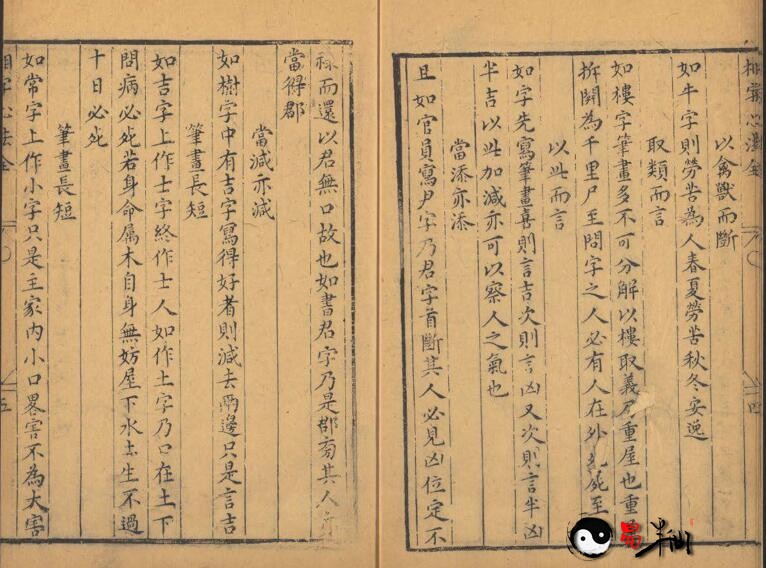 以禽獸而斷
如牛字則勞苦為人春夏勞苦秋冬安逸
取類而言
如樓字筆畫多不可分解以樓取義乃重屋也重
拆開為千里尸至問字之人必有人在外死至
以此而言
如字先寫筆畫喜則言吉次則言凶又次則言半凶
半吉以此加減亦可以察人之氣也
當添亦添
且如官員寫尹字乃君字首斷其人必見凶位定不
四
祿而還以君無口故也如書君字乃是郡旁其人
當得郡
當減亦減
如樹字中有吉字寫得好者則減去兩邊只是言吉
筆畫長短
如吉字上作士字終作士人如作土字乃口在土下
問病必死若身命属木自身無妨屋下水土生不過
十日必死
筆畫長短
如常字上作小字只是主家內小口畧害不為大害
相字心法全
五
易半仙